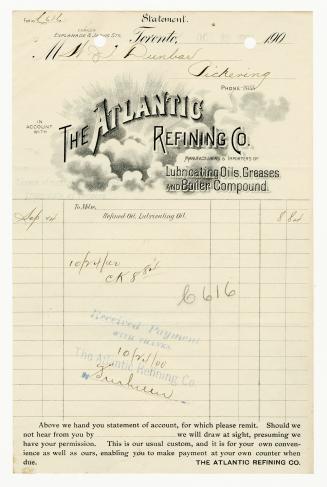 Statement.
CORNER
ESPLANADE & JARVIS STS.
Toronto, 190
M Dunbar
Pickering
PHONE
IN
ACCOUNT
WITH
THE ATLANTIC
REFINING CO.
MANUFACTURERS & IMPORTERS OF
Lubricating Oils, Greases
AND Boiler Compound.
To Mdse.
Sep 24 Refined Oil. Lubricating Oil. 8 84
10/24/00
CK 8 84
C616
Received Payment
WITH THANKS
10/24/00
The Atlantic Refining Co.
Above we hand you statement of account, for which please remit. Should we
not hear from you by we will draw at sight, presuming we
have your permission. This is our usual custom, and it is for your own conven-
ience as well as ours, enabling you to make payment at your own counter when
due. THE ATLANTIC REFINING CO.